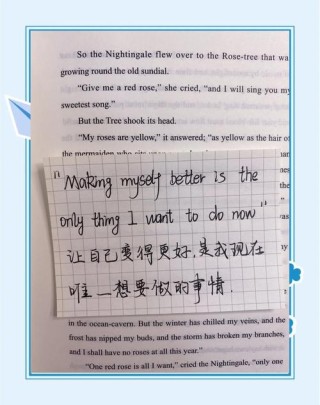 So the Nightingale flew over to the Rose-tree that wa
growing round the old sundial.
"Give me a red rose," she cried, "and I will sing you my
sweetest song."
But the Tree shook its head.
"My roses are yellow," it answered; "as yellow as the hair of
the mermaiden who sits
"Making myself better is the
only thing I want to do now"
让自己变得更好,是我现在
唯一想要做的事情.
in the ocean-cavern. But the winter has chilled my veins, and the
frost has nipped my buds, and the storm has broken my branches,
and I shall have no roses at all this year."
"One red rose is all I want," cried the Nightingale, "only one